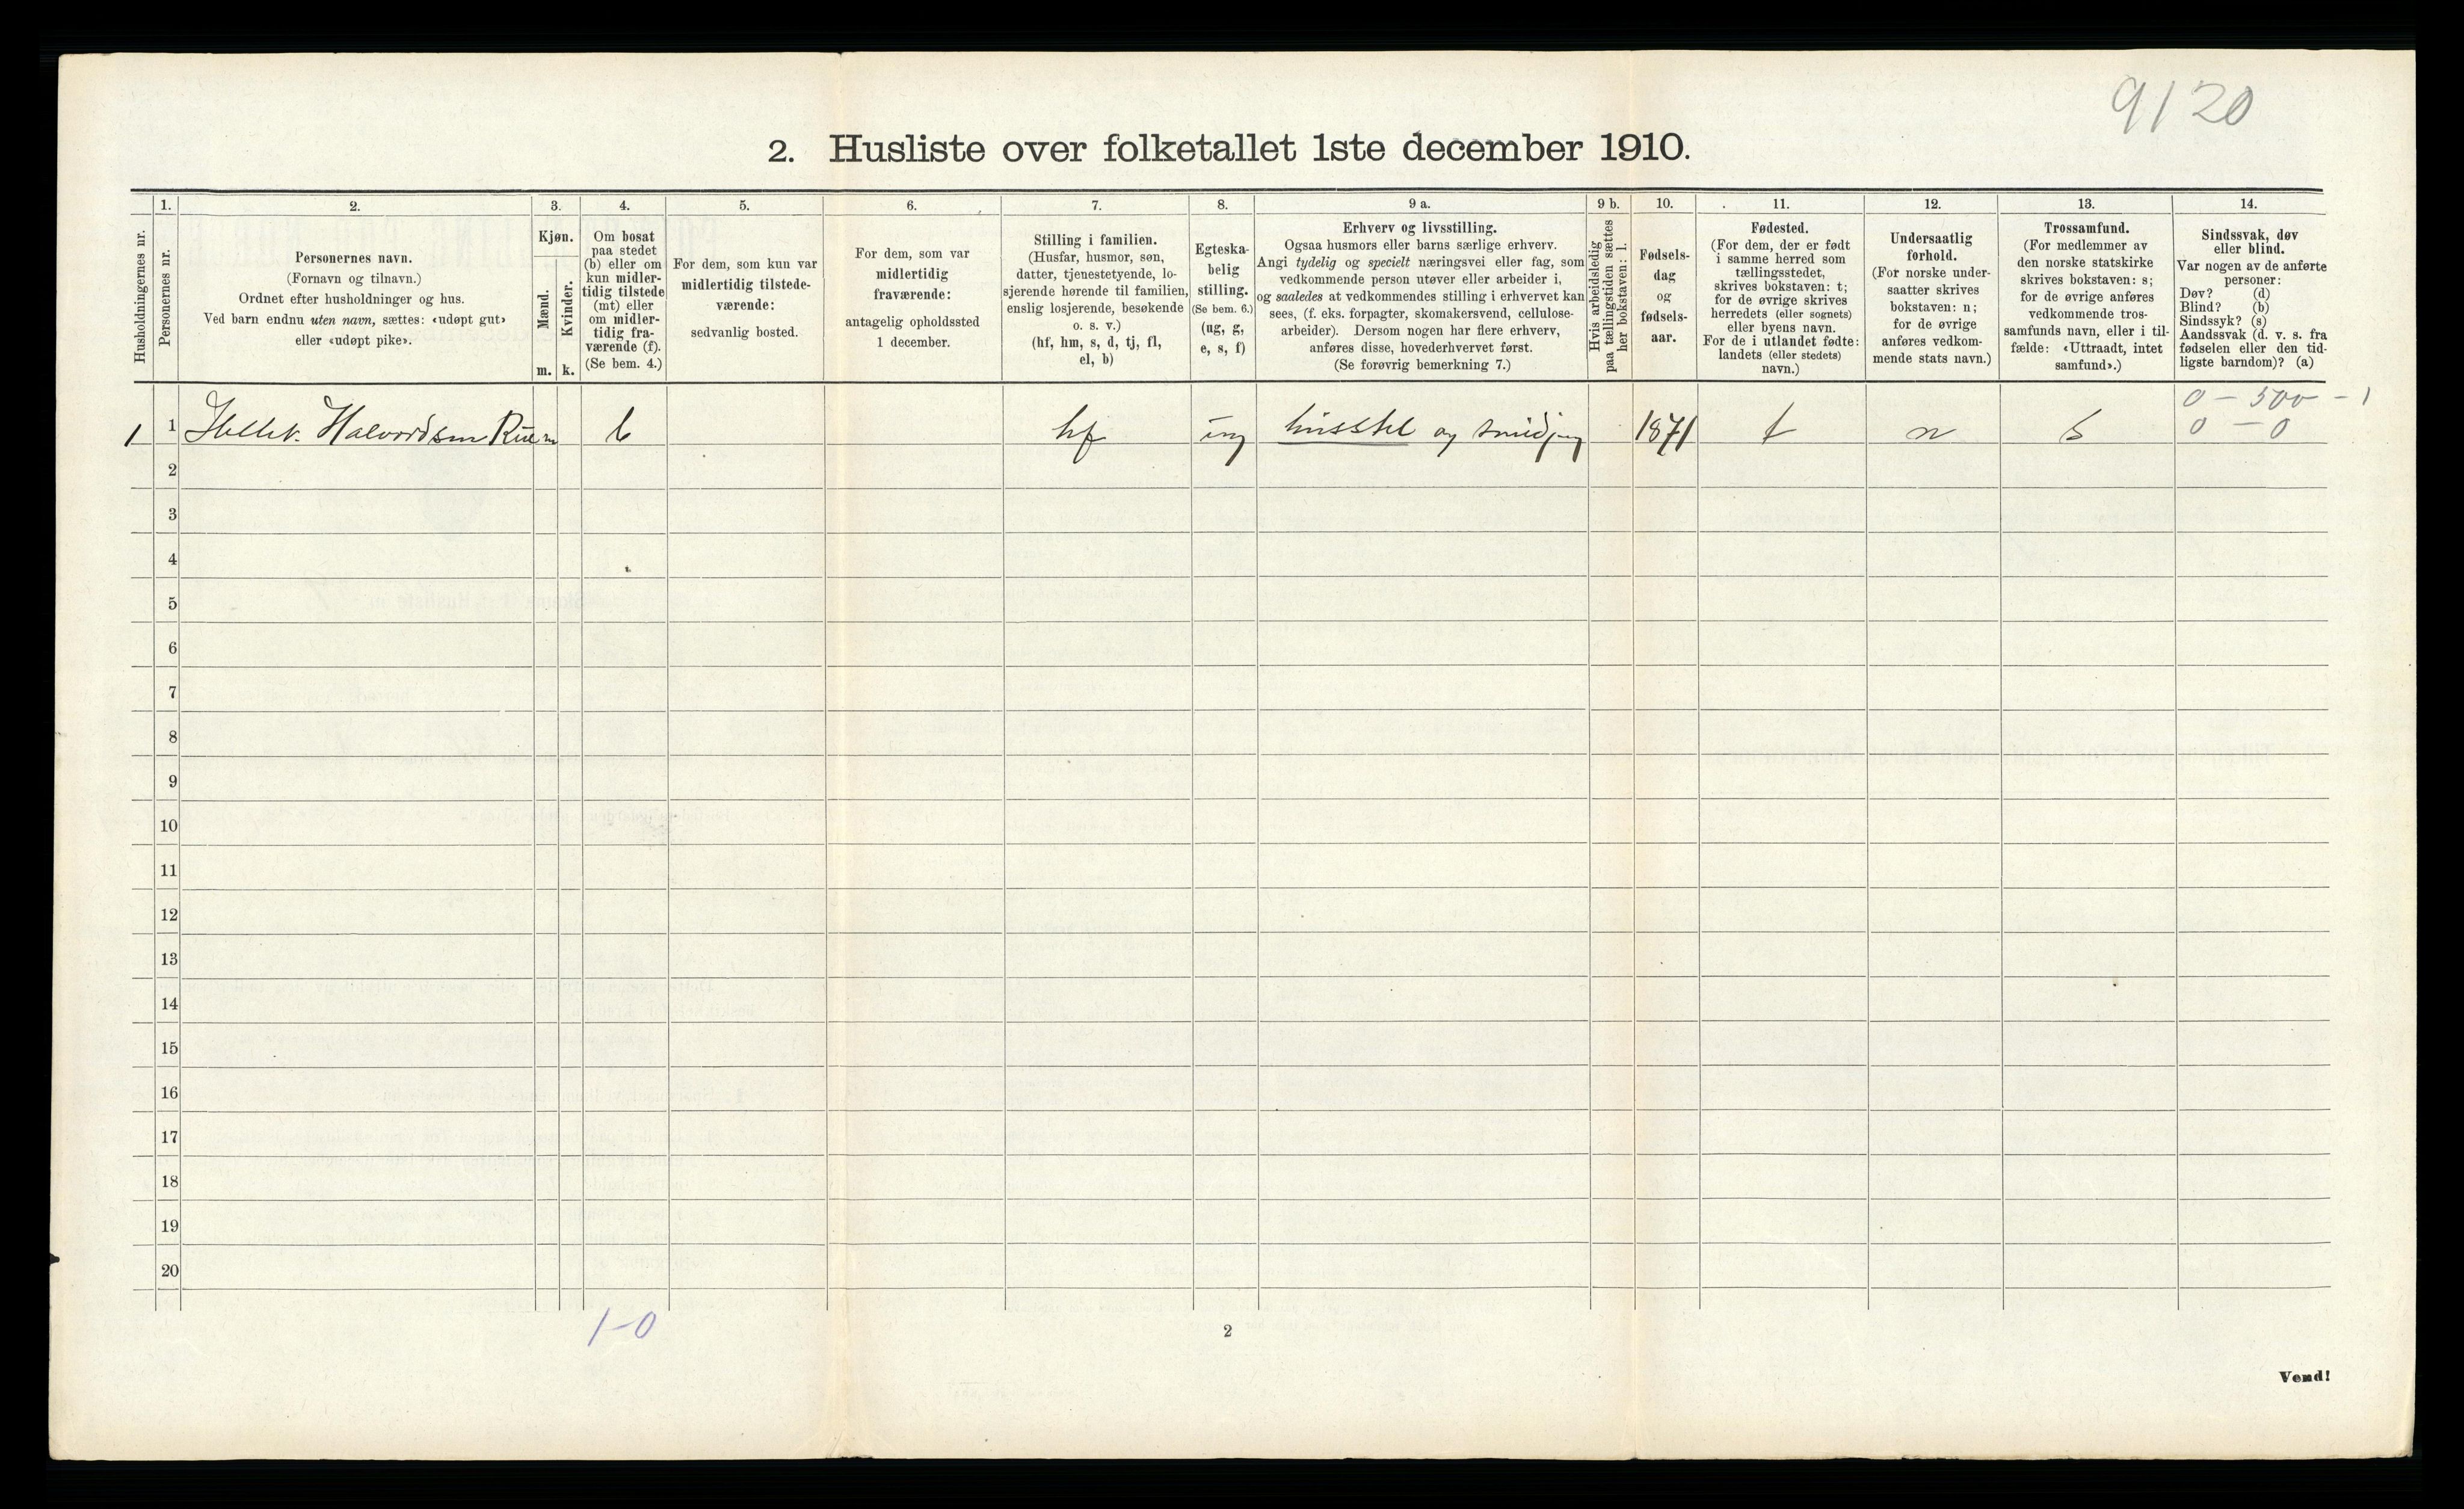 9120
2. Husliste over folketallet 1ste december 1910.
Husholdningernes nr.
1.
Personernes nr.
2.
Personernes navn.
(Fornavn og tilnavn.)
Ordnet efter husholdninger og hus.
Ved barn endnu uten navn, sættes: «udøpt gut»
eller «udøpt pike».
3.
Kjøn.
Mænd.
Kvinder.
m. k.
4.
Om bosat
paa stedet
(b) eller om
kun midler-
tidig tilstede
(mt) eller
om midler-
tidig fra-
værende (f).
(Se bem. 4.)
5.
For dem, som kun var
midlertidig tilstede-
værende:
sedvanlig bosted.
6.
For dem, som var
midlertidig
fraværende:
antagelig opholdssted
1 december.
7.
Stilling i familien.
(Husfar, husmor, søn,
datter, tjenestetyende, lo-
sjerende hørende til familien,
enslig losjerende, besøkende
o. s. v.)
(hf, hm, s, d, tj, fl,
el, b)
8.
Egteska-
belig
stilling.
(Se bem. 6.)
(ug, g,
e, s, f)
9 a.
Erhverv og livsstilling.
Ogsaa husmors eller barns særlige erhverv.
Angi tydelig og specielt næringsvei eller fag, som
vedkommende person utøver eller arbeider i,
og saaledes at vedkommendes stilling i erhvervet kan
sees, (f. eks. forpagter, skomakersvend, cellulose-
arbeider). Dersom nogen har flere erhverv,
anføres disse, hovederhvervet først.
(Se forøvrig bemerkning 7.)
9 b.
Hvis arbeidsledig
paa tællingstiden sættes
her bokstaven: l.
10.
Fødsels-
dag
og
fødsels-
aar.
11.
Fødested.
(For dem, der er født
i samme herred som
tællingsstedet,
skrives bokstaven: t;
for de øvrige skrives
herredets (eller sognets)
eller byens navn.
For de i utlandet fødte:
landets (eller stedets)
navn.)
12.
Undersaatlig
forhold.
(For norske under-
saatter skrives
bokstaven: n;
for de øvrige
anføres vedkom-
mende stats navn.)
13.
Trossamfund.
(For medlemmer av
den norske statskirke
skrives bokstaven: s;
for de øvrige anføres
vedkommende tros-
samfunds navn, eller i til-
fælde: «Uttraadt, intet
samfund».)
14.
Sindssvak, døv
eller blind.
Var nogen av de anførte
personer:
Døv? (d)
Blind? (b)
Sindssyk? (s)
Aandssvak (d. v. s. fra
fødselen eller den tid-
ligste barndom)? (a)
0 - 500 - 1
1 1 Halvordsen m b hf ug og 1871 t n s 0 - 0
2
3
4
5
6
7
8
9
10
11
12
13
14
15
16
17
18
19
20
1-0
2
Vend!